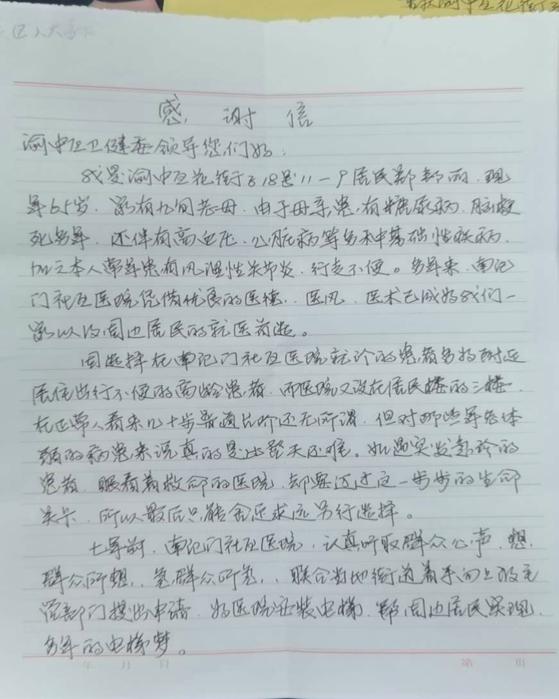 感谢信
渝中区卫健委领导您们好：
我是渝中区花街子18号11-9居民郭都丽，现
年65岁，家有九旬老母，由于母亲患有糖尿病，脑梗
死多年，还伴有高血压，心脏病等多种基础性疾病，
加之本人常年患有风湿性关节炎，行走不便。多年来，南纪
门社区医院凭借优良的医德，医风，医术已成为我们一
家以及周边居民的就医首选。
因选择在南纪门社区医院就诊的患者多为附近
居住出行不便的高龄患者，而医院又设在居民楼的三楼，
在正常人看来几十步普通台阶还无所谓，但对那些年老体
弱的病患来说真的是比登天还难。如遇突发急诊的
患者，眼看着救命的医院，却要迈过这一步步的生命
关卡，所以最后只能舍近求远另行选择。
七年前，南纪门社区医院，认真听取群众心声，想
群众所想，急群众所急，联合当地街道着手向上级主
管部门提出申请，为医院安装电梯，帮周边居民实现
多年的电梯梦。
年 月 日
第 页